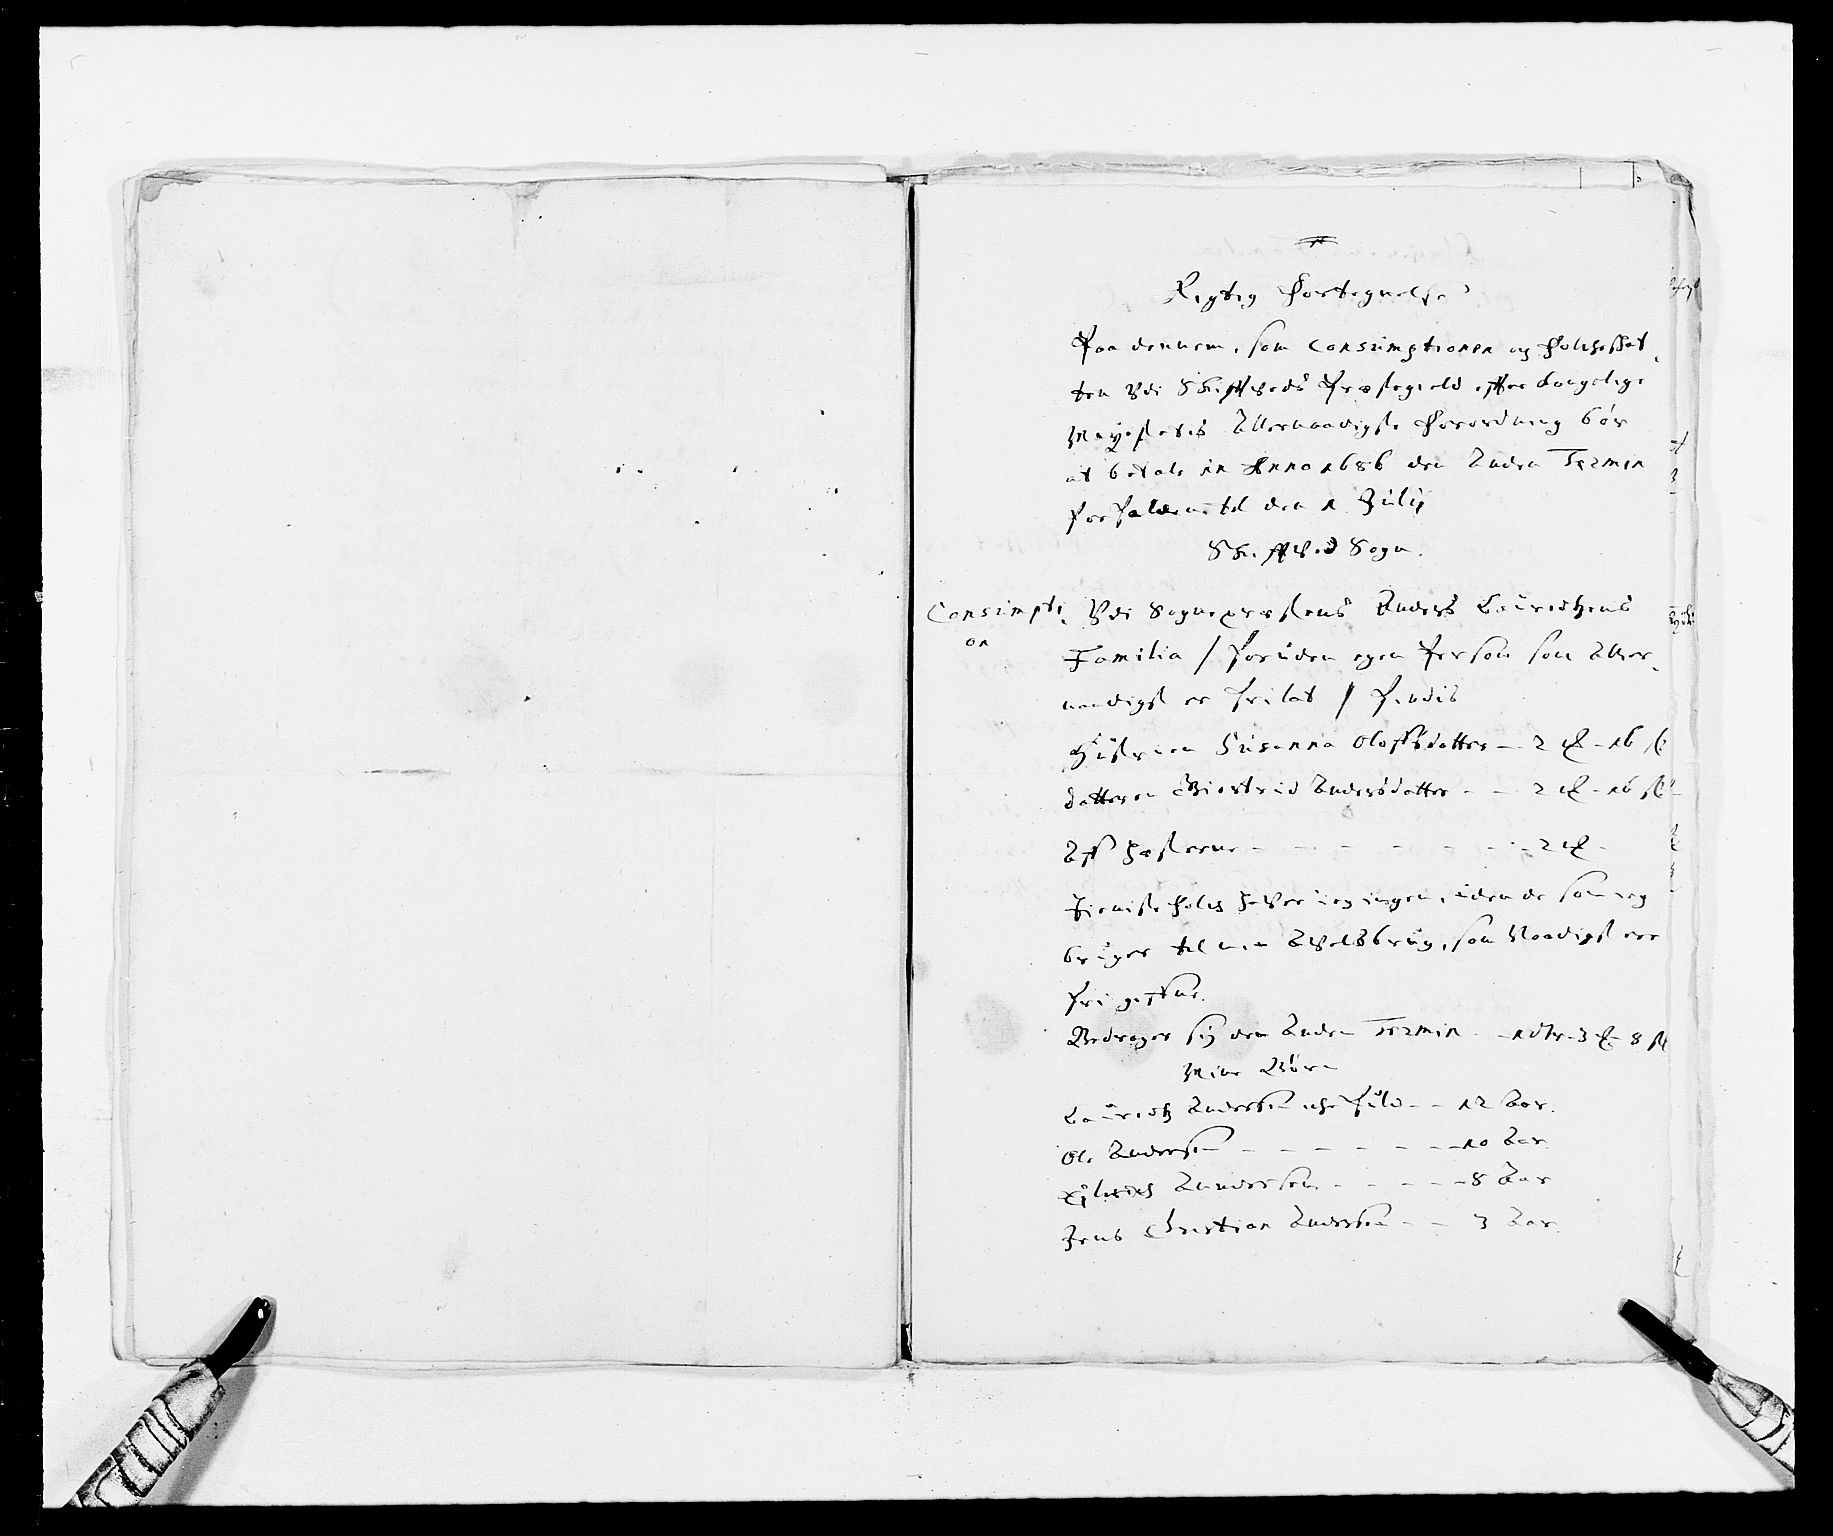 Rigtig Fortegnelse
Paa dennem, som Consumptionen og Folcheskat-
ten Vdi Skiffveds Præstegield effter Kongelige
Mayestetis Allernaadigste Forordning bør
at betale in Anno 1686 den Anden Termin
forfalden til den 1 Julij
Skiffved Sogn.
Consumpti-
on
Vdi Sogneprestens Anders Lauridtzens
Familia / foruden egen Person som Aller-
naadigst er frilat / findis
Hustruen Susanna Oloffsdatter — 2 ℳ - 16 sk
Datteren Giertrud Andersdatter - - 2 ℳ - 16 sk
Aff Hæsterne - - - - - - 2 ℳ
Tieniste Folch hafver ieg ingen, uden de som ieg
bruger til min Avelsbrug, som Naadigst ere
fri giffne.
Bedrager sig den Anden Termin - 1 dlr - 3 ℳ - 8 sk
Mine Børn
Lauridtz Andersen iche fuld - - 12 Aar.
Ole Andersen - - - - - - 10 Aar
Andersen - - - - 8 Aar
Jens Christian Andersen - - 3 Aar.